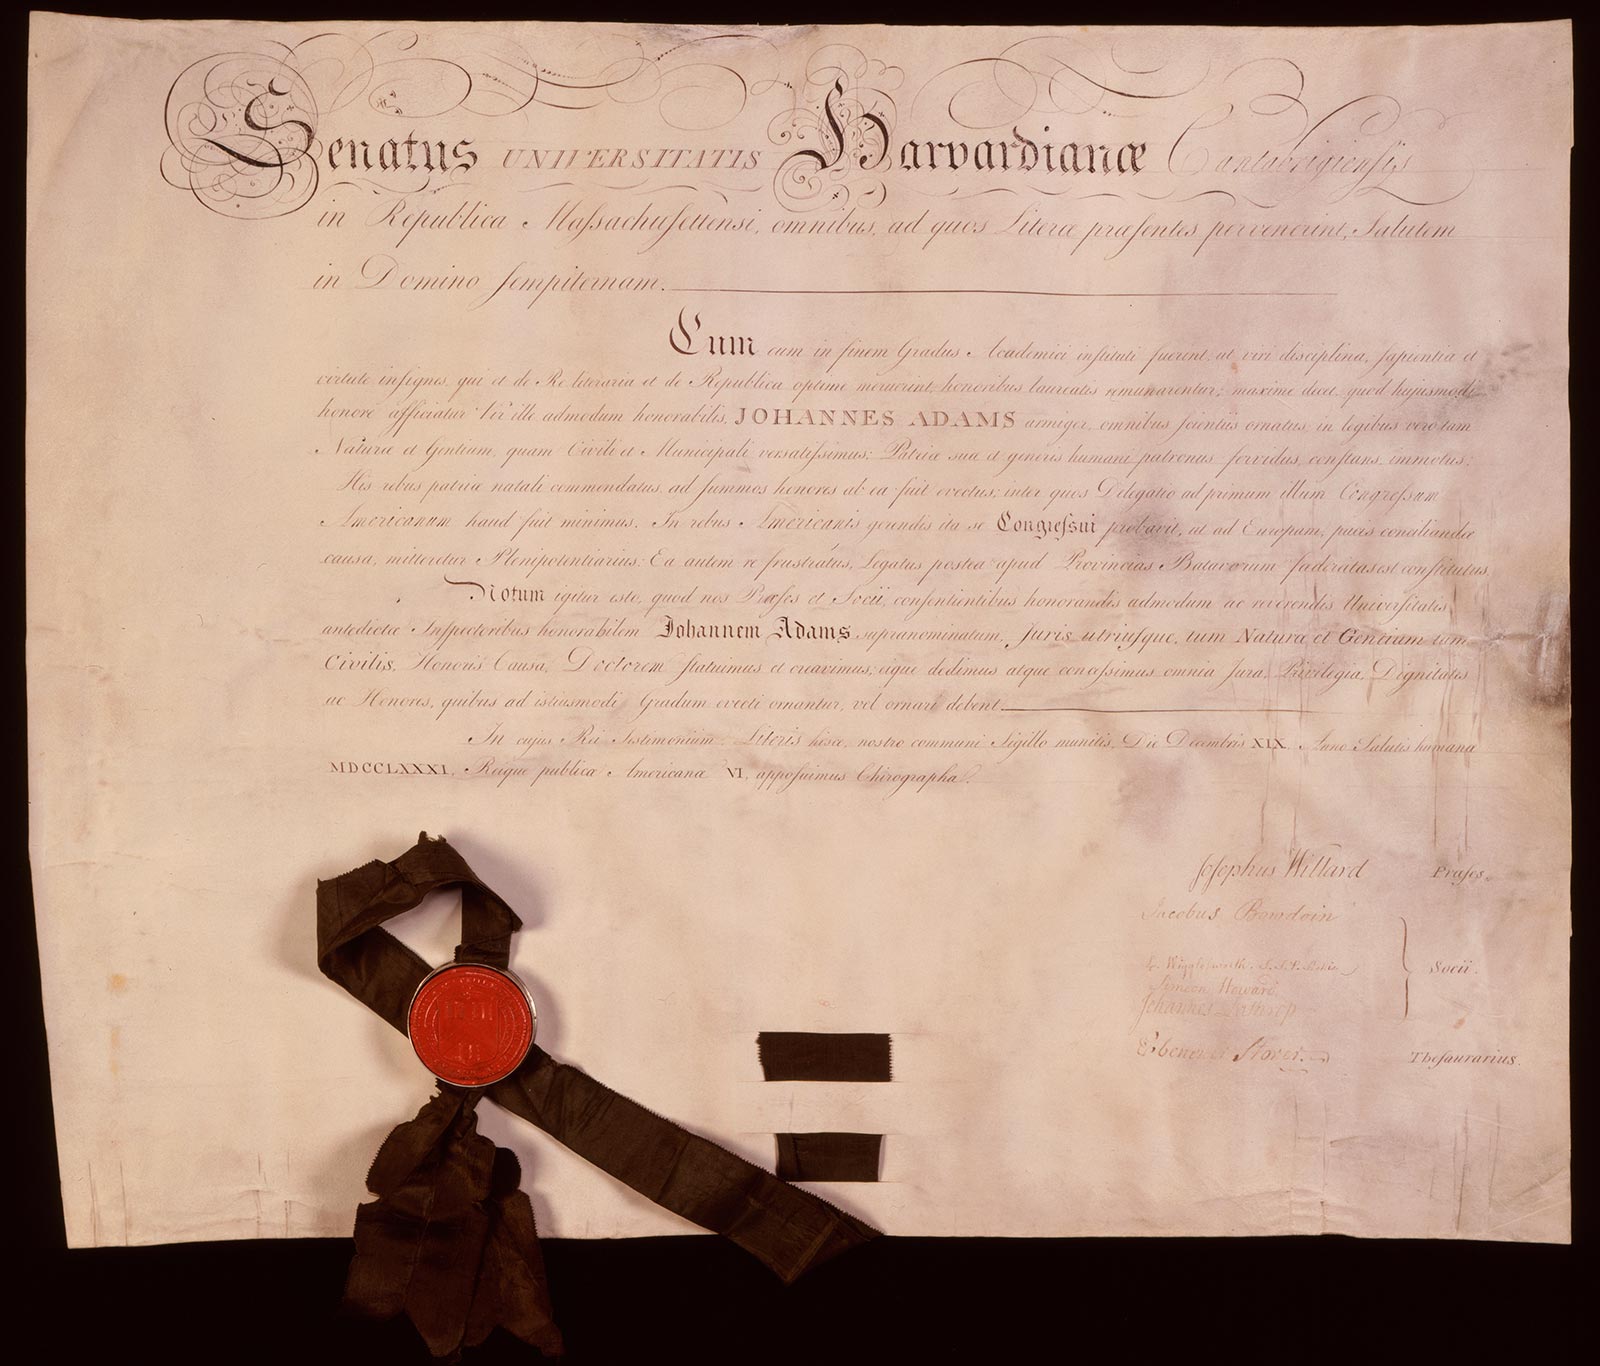 Senatus UNIVERSITATIS Harvardianæ Cantabrigiensis
in Republica Maſsachuſettensi, omnibus, ad quos Literæ præſentes pervenerint, Salutem
in Domino ſempiternam.
Cum eum in finem Gradus Academici inſtituti fuerint, ut viri disciplina, ſapientia et
virtute inſignes, qui et de Re literaria et de Republica optime meruerint, honoribus laureatis remunerarentur; maxime decet, quod hujusmodi
honore afficiatur Vir ille admodum honorabilis, JOHANNES ADAMS armiger, omnibus ſcientiis ornatus, in legibus vero tam
Naturæ et Gentium, quam Civili et Municipali versatiſsimus; Patriæ suæ et generis humani patronus fervidus, conſtans, immotus:
His rebus patriæ natali commendatus, ad ſummos honores ab ea fuit evectus; inter quos Delegatio ad primum illum Congreſsum
Americanum haud fuit minimus. In rebus Americanis gerendis ita se Congreſsui probavit, ut ad Europam, pacis conciliandæ
causa, mitteretur Plenipotentiarius: Ea autem re fruſtratus, Legatus postea apud Provincias Batavorum fœderatas est conſtitutus.
Notum igitur eſto, quod nos Præſes et Socii, conſentientibus honorandis admodum ac reverendis Univerſitatis
antedictæ Inſpectoribus honorabilem Johannem Adams supranominatum, Juris utriuſque, tum Naturæ et Gentium tum
Civilis, Honoris Causa, Doctorem ſtatuimus et creavimus; eique dedimus atque conceſsimus omnia Jura, Privilegia, Dignitates
ac Honores, quibus ad istiusmodi Gradum evecti ornantur, vel ornari debent.
In cujus Rei Testimonium Literis hisce, nostro communi Sigillo munitis, Die Decembris XIX. Anno Salutis humanæ
MDCCLXXXI, Reique publicæ Americanæ VI, appoſuimus Chirographa.
Joſephus Willard Præſes.
Jacobus Bowdoin
E. Wiggleſworth. S.T.P.
Simeon Howard.
Socii.
Johannes Lathrop
Ebenezer Storer. Theſaurarius.